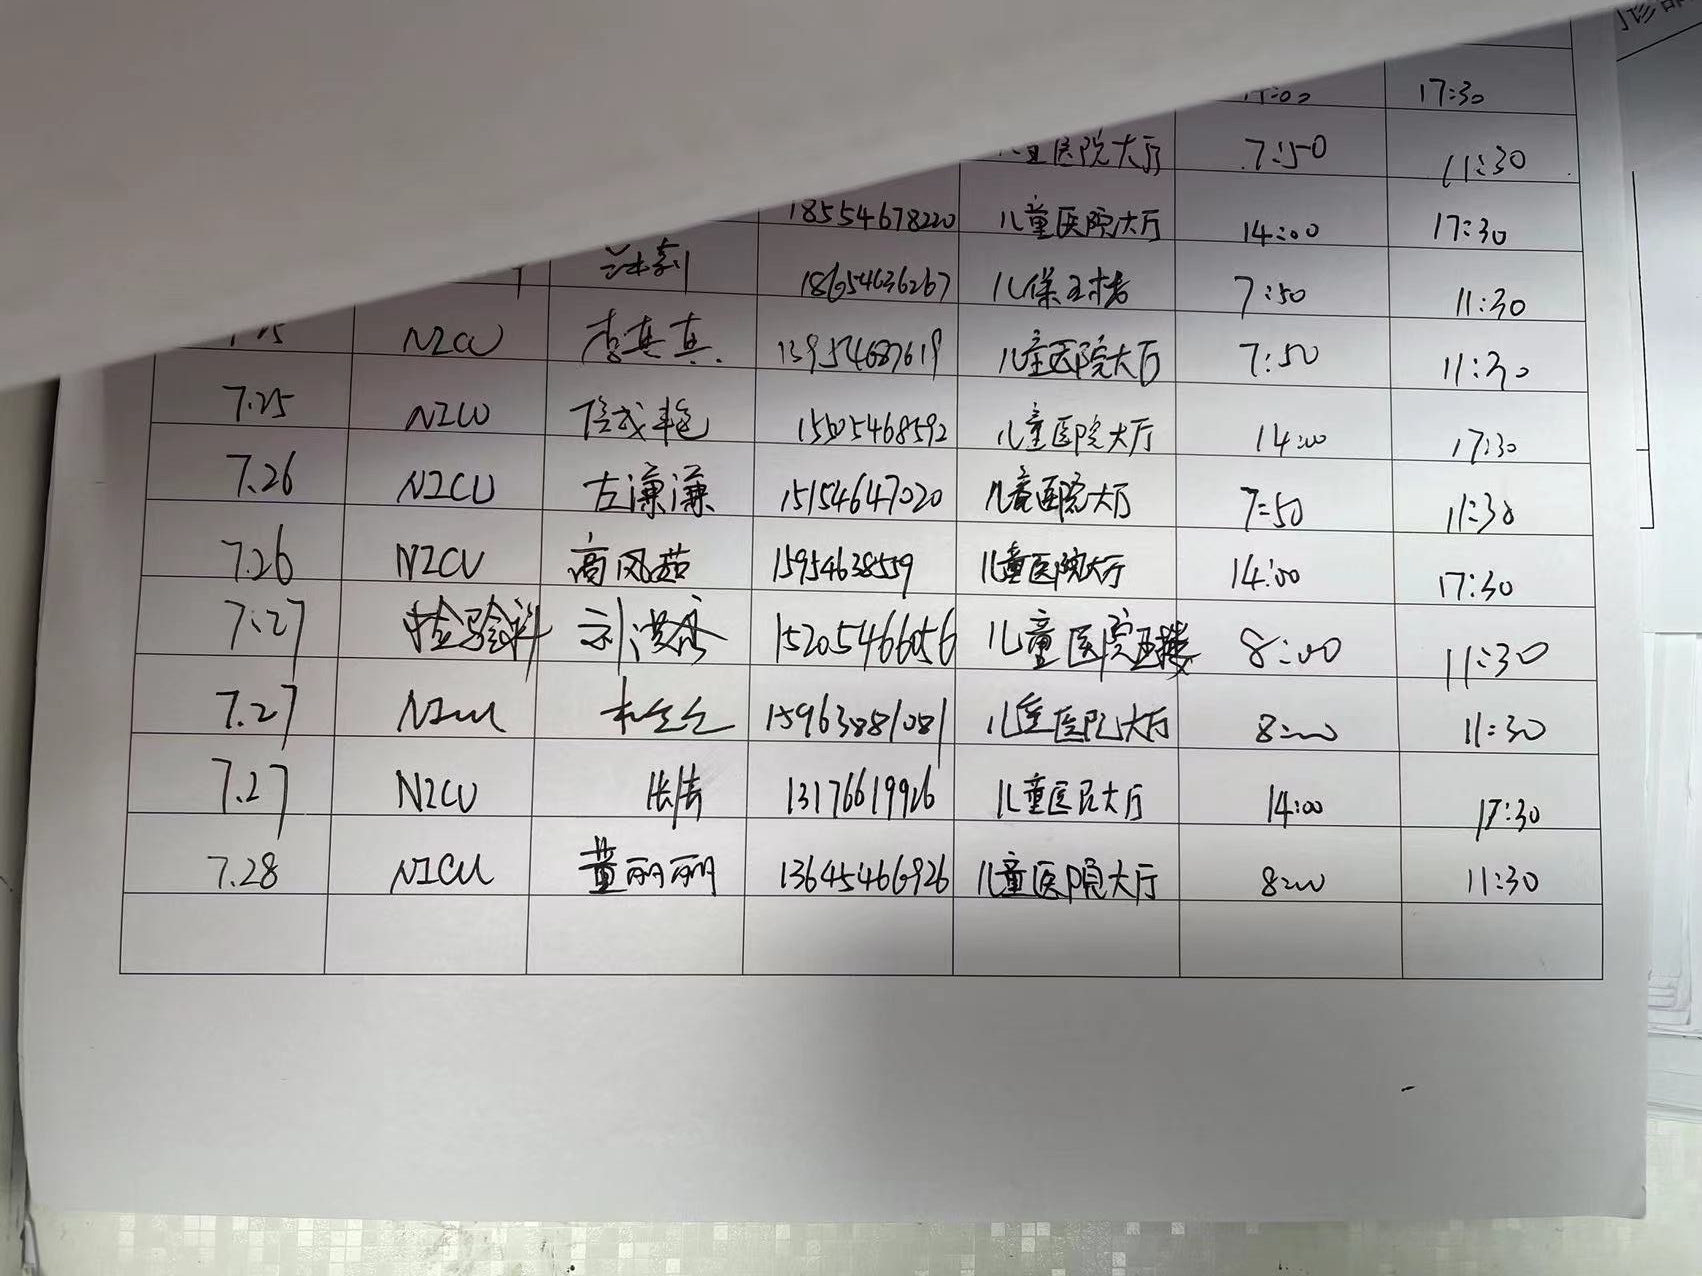 17:30
医院大厅 7:50 11:30
18554678220 儿童医院大厅 14:00 17:30
18654636267 儿保五楼 7:50 11:30
NICU 李真真 13954687619 儿童医院大厅 7:50 11:30
7.25 NICU 15505468592 儿童医院大厅 14:00 17:30
7.26 NICU 左濂濂 15154647020 儿童医院大厅 7:50 11:30
7.26 NICU 高风茹 15954638559 儿童医院大厅 14:00 17:30
7.27 检验科 刘洪秀 15205466056 儿童医院五楼 8:00 11:30
7.27 NICU 15963881081 儿童医院大厅 8:00 11:30
7.27 NICU 张倩 13176619926 儿童医院大厅 14:00 17:30
7.28 NICU 董丽丽 13645466926 儿童医院大厅 8:00 11:30